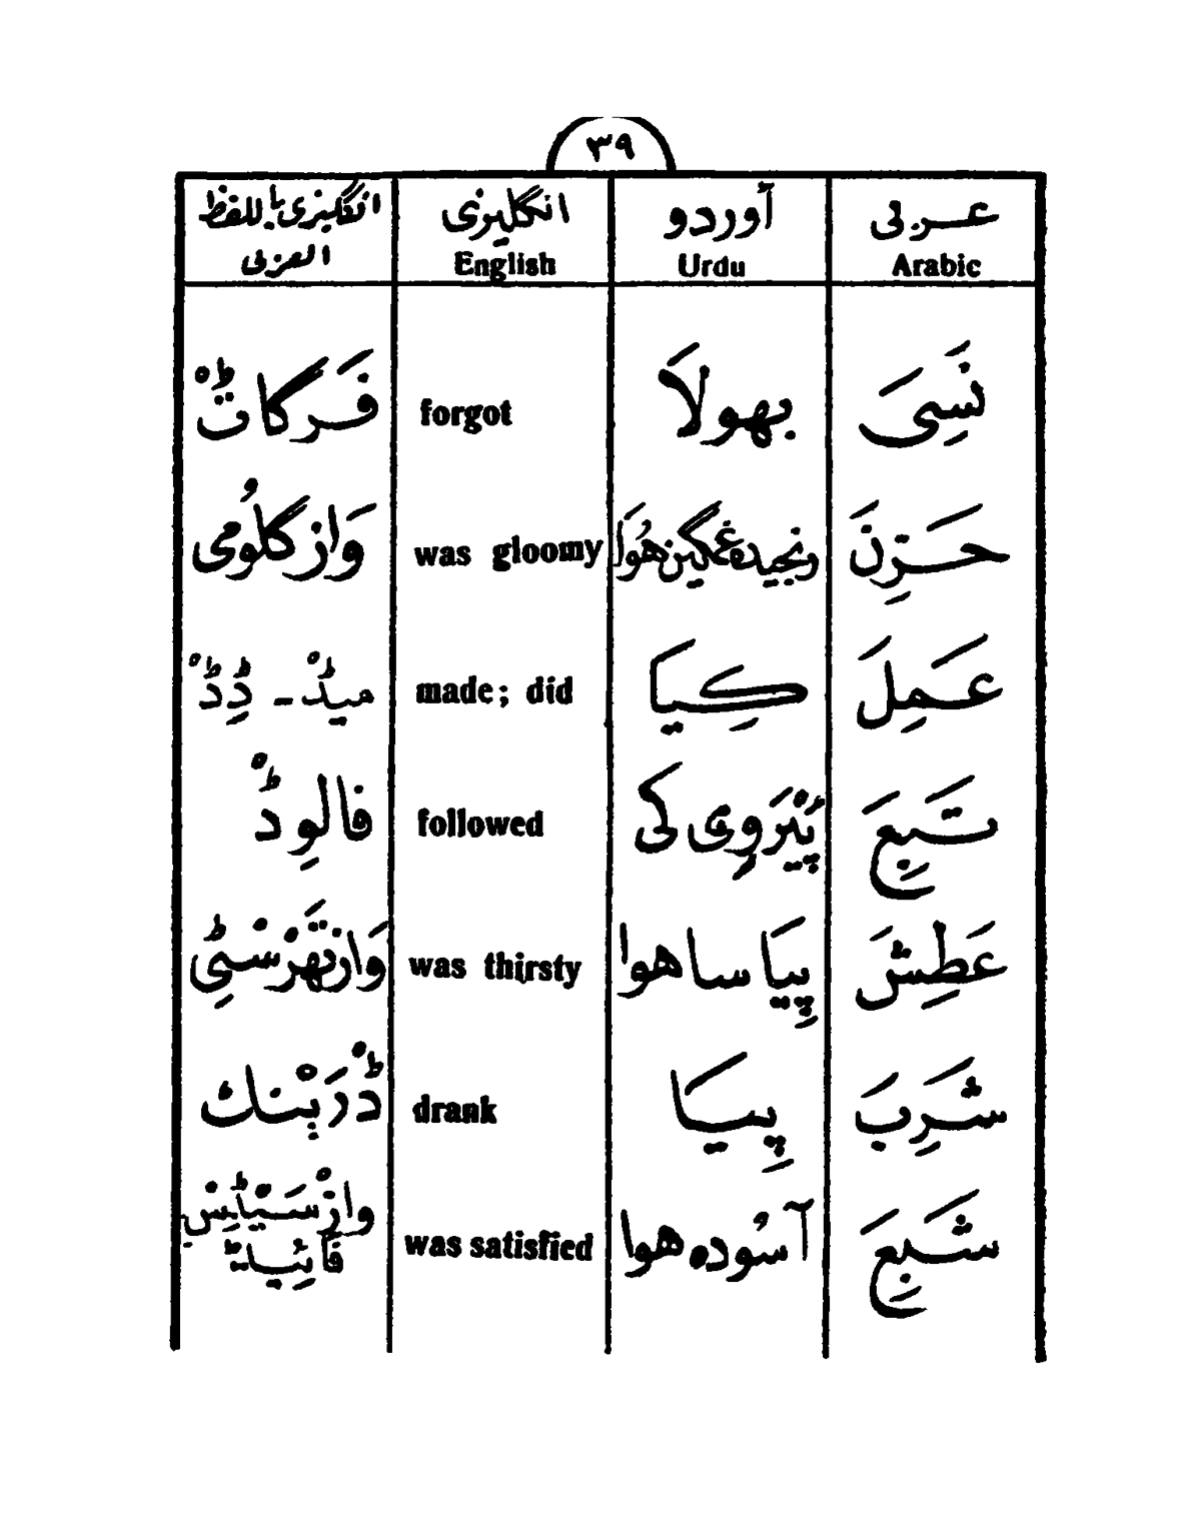 ٣٩
عربی	آوردو	انگلیزی	انگلیزی باللفظ
Arabic	Urdu	English	العربی
نَسِیَ	بھولَا	forgot	فَرگاٹْ
حَزِنَ	رنجیدہ غمگین ھُوَا	was gloomy	وَاز گلُومی
عَمِلَ	کِیَا	made; did	میڈْ - ڈِڈْ
تَبِعَ	پَیْرَوِی کی	followed	فالوِڈْ
عَطِشَ	پِیَا سا ھوا	was thirsty	وَاز تھَرْسْٹِی
شَرِبَ	پِیَا	drank	ڈْرَیْنک
شَبِعَ	آسُودہ ھوا	was satisfied	وازْ سَیْٹِسْ
فَائِیڈ